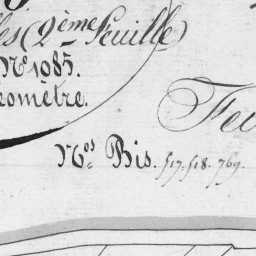 les (2ème Feuille)
N° 1085.
éomètre.
Feu
Nos Bis. 517. 518. 769.